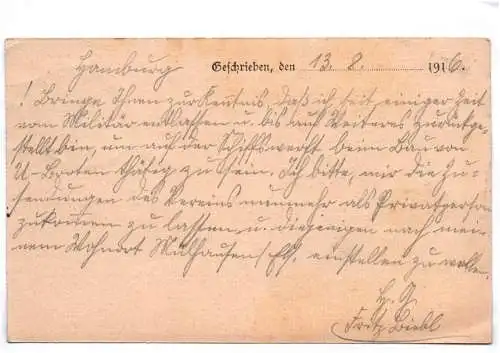 Hamburg Geschrieben, den 13. 8. 1916.
! Bringe Ihnen zur Kentnis, daß ich, seit einiger Zeit
vom Militär entlassen u. bis auf Weiteres zurückge-
stellt bin, um auf der Schiffswerft beim Bau von
U-Booten thätig zu sein. Ich bitte, mir die Zu-
sendungen des Vereins nunmehr als Privatperson
zukommen zu lassen, u. diejenigen nach mei-
nem Wohnort Mülhausen/Els. einstellen zu wollen.
H. G.
Fritz Biebl